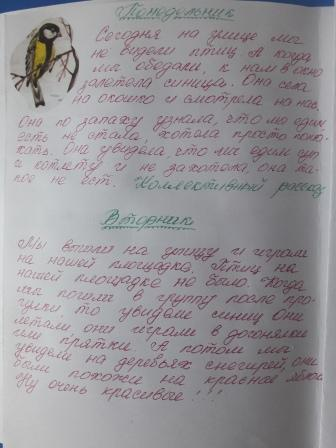 Понедельник
Сегодня на улице мы
не видели птиц. А когда
мы обедали, к нам в окно
залетела синица. Она села
на окошко и смотрела на нас.
Она по запаху узнала, что мы едим
есть не стала, хотела просто поню-
хать. Она увидела, что мы едим суп
и котлету и не захотела, она та-
кое не ест. Коллективный рассказ
Вторник
Мы вышли на улицу и играли
на нашей площадке. Птиц на
нашей площадке не было. Когда
мы пошли в группу после про-
гулки то увидели синиц они
летали, они играли в догонялки
или прятки. А потом мы
увидели на деревьях снегирей, они
были похожи на красные яблоки
Ну очень красивые!!!